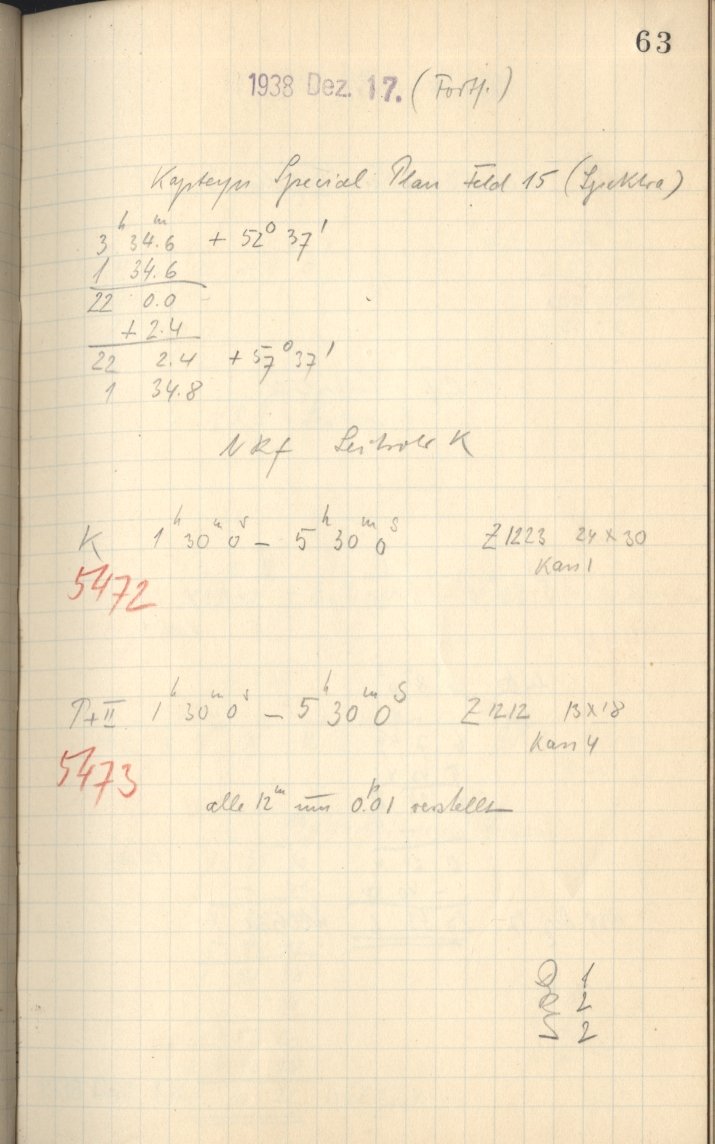 63
1938 Dez. 17. (Forts.)
Kapteyn Special Plan Feld 15 (Spektra)
3 h 34.6 m + 52° 37'
1 34.6
22 0.0
+ 2.4
22 2.4 + 57° 37'
1 34.8
NRf Leitrohr K
K 1h 30m 0s – 5h 30m 0s Z 1223 24 x 30
Kass 1
5472
P+II 1h 30m 0s – 5h 30m 0s Z 1212 13 x 18
Kass 4
5473
alle 12m um 0.01 verstellt
1
R 2
S 2